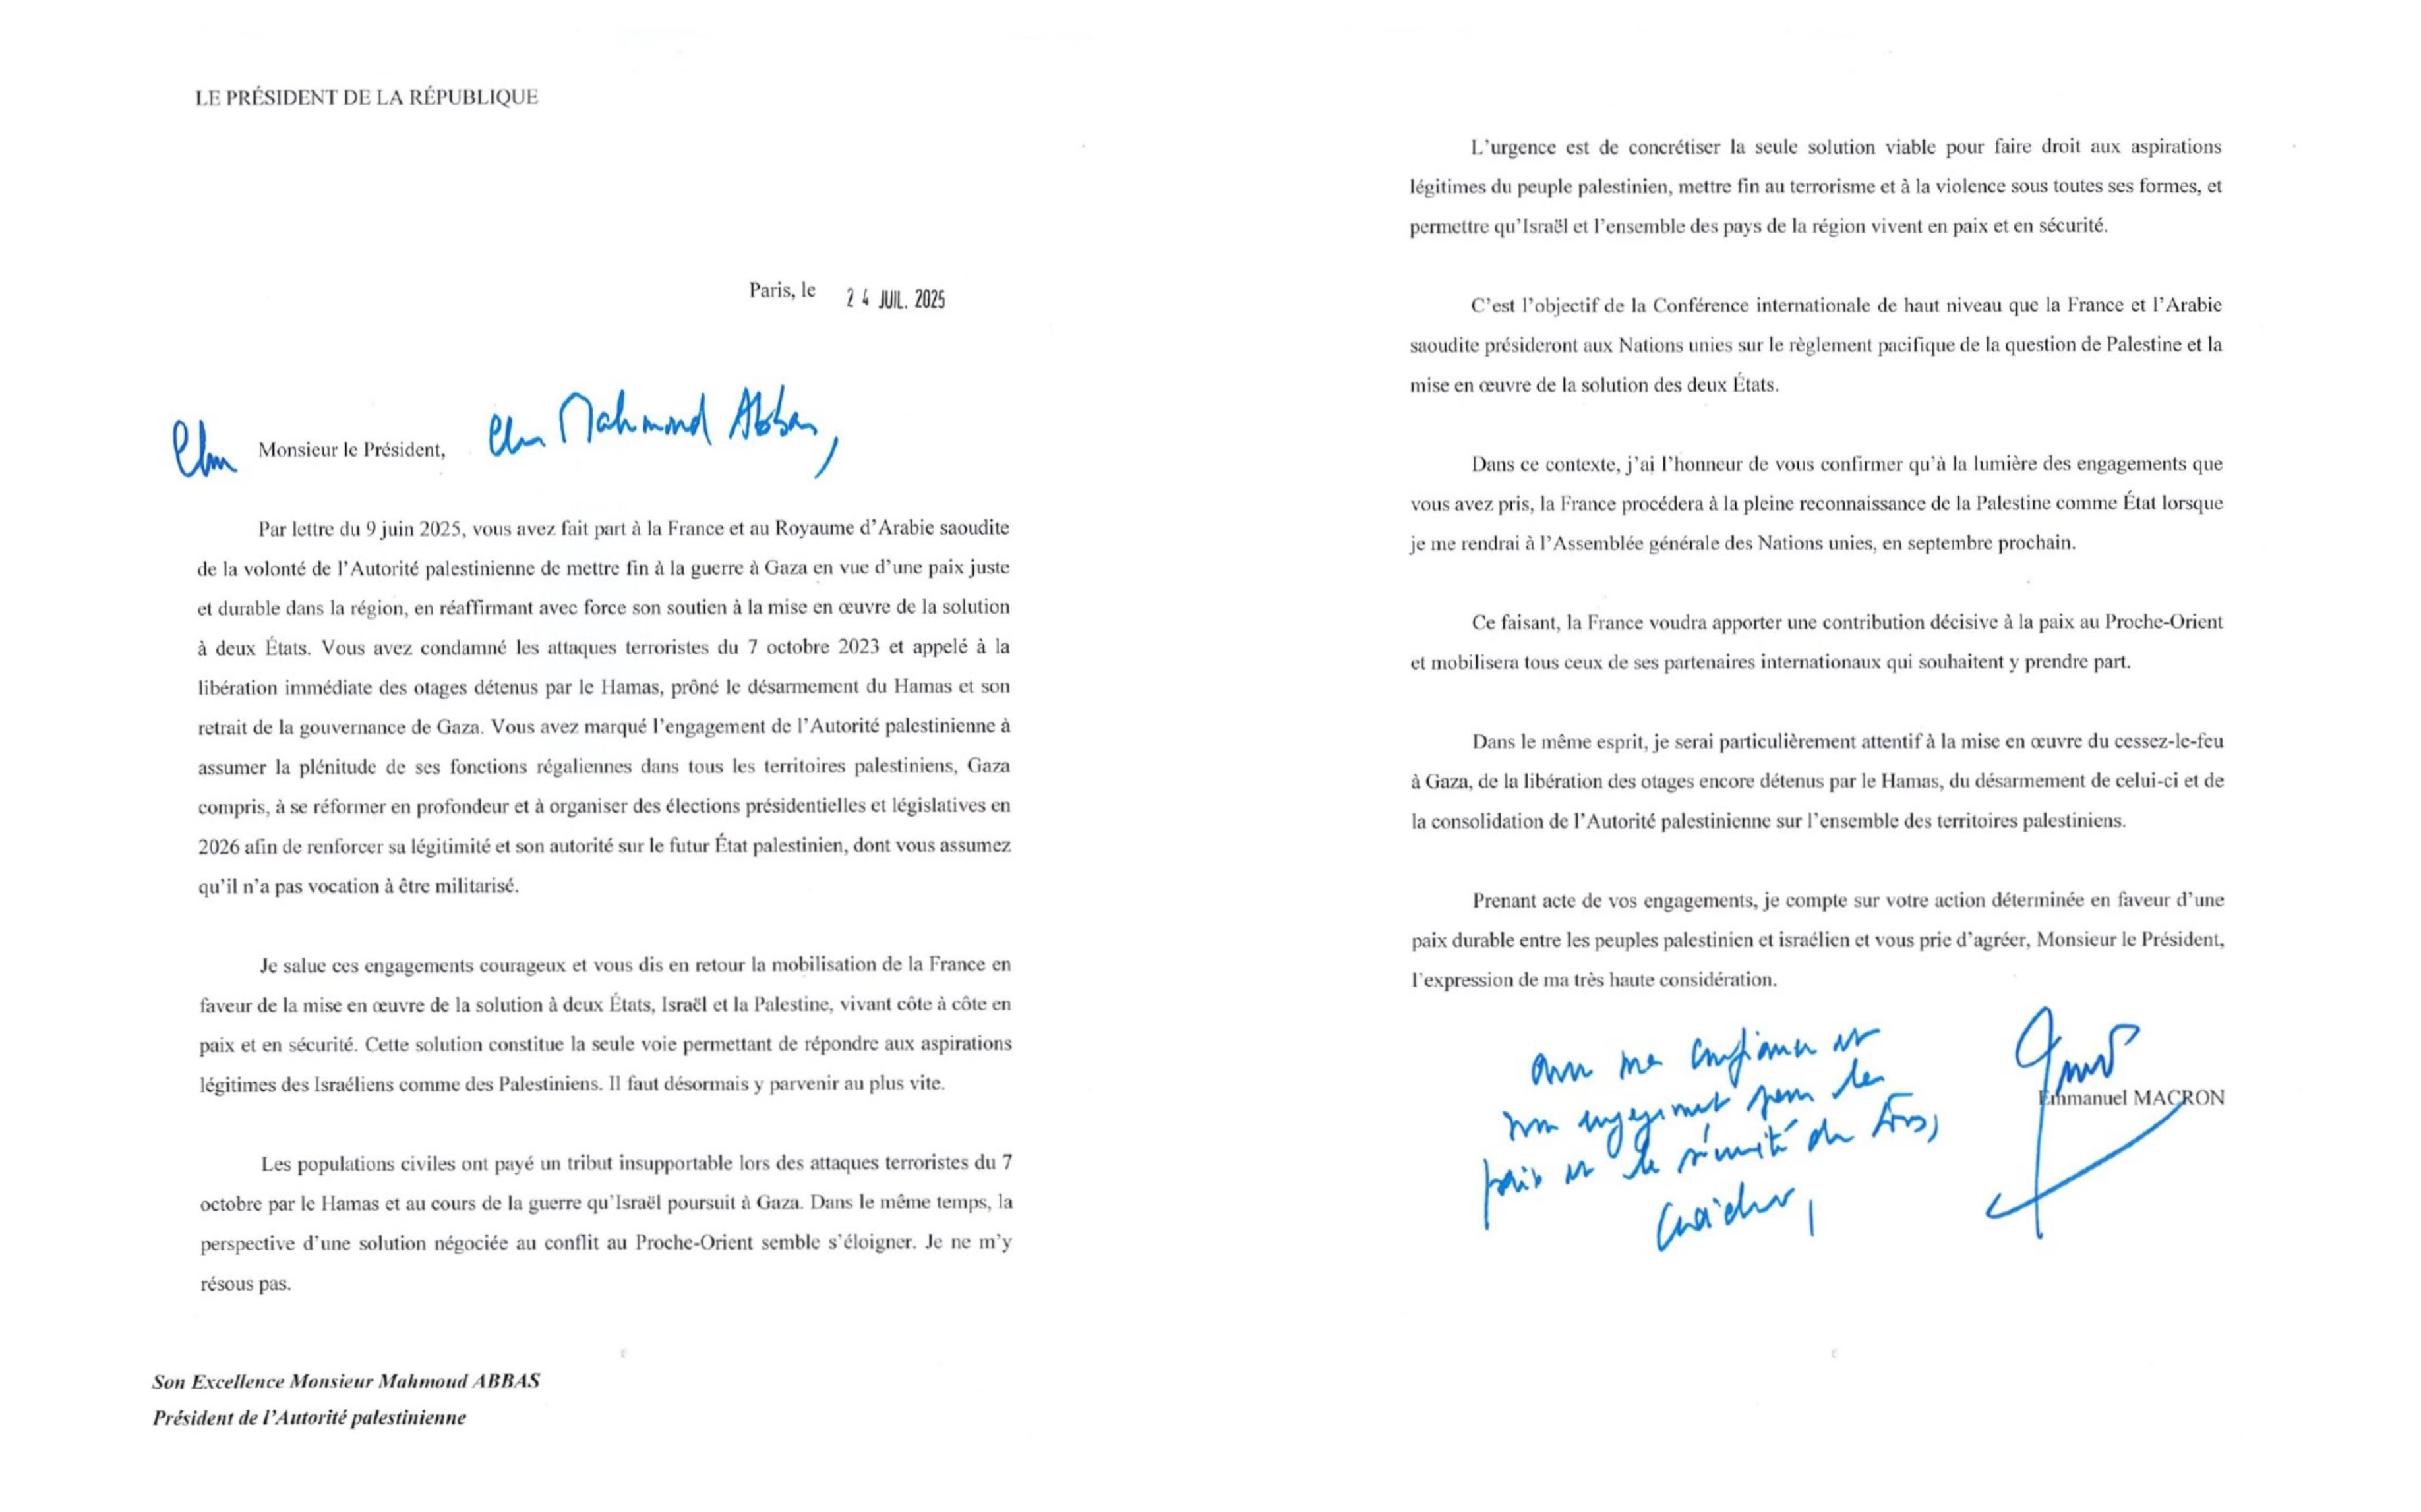 LE PRÉSIDENT DE LA RÉPUBLIQUE
Paris, le 24 JUIL. 2025
Cher Monsieur le Président, cher Mahmoud Abbas,
Par lettre du 9 juin 2025, vous avez fait part à la France et au Royaume d’Arabie saoudite
de la volonté de l’Autorité palestinienne de mettre fin à la guerre à Gaza en vue d’une paix juste
et durable dans la région, en réaffirmant avec force son soutien à la mise en œuvre de la solution
à deux États. Vous avez condamné les attaques terroristes du 7 octobre 2023 et appelé à la
libération immédiate des otages détenus par le Hamas, prôné le désarmement du Hamas et son
retrait de la gouvernance de Gaza. Vous avez marqué l’engagement de l’Autorité palestinienne à
assumer la plénitude de ses fonctions régaliennes dans tous les territoires palestiniens, Gaza
compris, à se réformer en profondeur et à organiser des élections présidentielles et législatives en
2026 afin de renforcer sa légitimité et son autorité sur le futur État palestinien, dont vous assumez
qu’il n’a pas vocation à être militarisé.
Je salue ces engagements courageux et vous dis en retour la mobilisation de la France en
faveur de la mise en œuvre de la solution à deux États, Israël et la Palestine, vivant côte à côte en
paix et en sécurité. Cette solution constitue la seule voie permettant de répondre aux aspirations
légitimes des Israéliens comme des Palestiniens. Il faut désormais y parvenir au plus vite.
Les populations civiles ont payé un tribut insupportable lors des attaques terroristes du 7
octobre par le Hamas et au cours de la guerre qu’Israël poursuit à Gaza. Dans le même temps, la
perspective d’une solution négociée au conflit au Proche-Orient semble s’éloigner. Je ne m’y
résous pas.
Son Excellence Monsieur Mahmoud ABBAS
Président de l’Autorité palestinienne
L’urgence est de concrétiser la seule solution viable pour faire droit aux aspirations
légitimes du peuple palestinien, mettre fin au terrorisme et à la violence sous toutes ses formes, et
permettre qu’Israël et l’ensemble des pays de la région vivent en paix et en sécurité.
C’est l’objectif de la Conférence internationale de haut niveau que la France et l’Arabie
saoudite présideront aux Nations unies sur le règlement pacifique de la question de Palestine et la
mise en œuvre de la solution des deux États.
Dans ce contexte, j’ai l’honneur de vous confirmer qu’à la lumière des engagements que
vous avez pris, la France procédera à la pleine reconnaissance de la Palestine comme État lorsque
je me rendrai à l’Assemblée générale des Nations unies, en septembre prochain.
Ce faisant, la France voudra apporter une contribution décisive à la paix au Proche-Orient
et mobilisera tous ceux de ses partenaires internationaux qui souhaitent y prendre part.
Dans le même esprit, je serai particulièrement attentif à la mise en œuvre du cessez-le-feu
à Gaza, de la libération des otages encore détenus par le Hamas, du désarmement de celui-ci et de
la consolidation de l’Autorité palestinienne sur l’ensemble des territoires palestiniens.
Prenant acte de vos engagements, je compte sur votre action déterminée en faveur d’une
paix durable entre les peuples palestinien et israélien et vous prie d’agréer, Monsieur le Président,
l’expression de ma très haute considération.
avec ma confiance et
mon engagement pour la
paix et la sécurité de tous,
Emmanuel MACRON